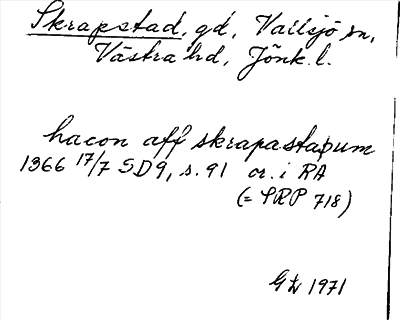 Skrapstad, gd, Vallsjö sn,
Västra hd, Jönk. l.
hacon aff skrapastaþum
1366 17/7 SD9, s. 91 or. i RA
(= SRP 718)
1971